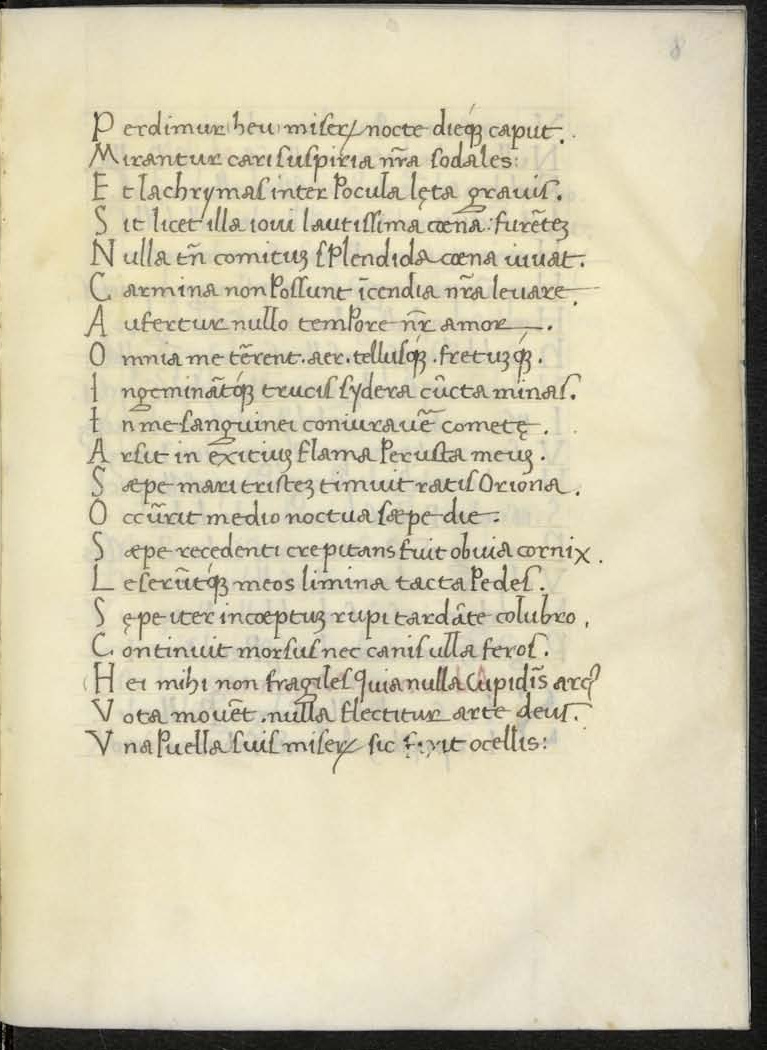 8
Perdimur heu miserꝝ nocte dieqꝫ caput.
Mirantur cari suspiria nr̃a sodales:
Et lachrymas inter pocula lęta grauis.
Sit licet illa ioui lautissima cœna: furẽteꝫ
Nulla tñ comituꝫ splendida cœna iuuat.
Carmina non possunt ĩcendia nr̃a leuare
Aufertur nullo tempore nr̃ amor.
Omnia me tẽrent. aer. tellusqꝫ. fretuꝫqꝫ.
Ingeminãtqꝫ trucis sydera cũcta minas.
In me sanguinei coniurauẽ cometę.
Arsit in exitiuꝫ flama perusta meuꝫ.
Sæpe mari tristeꝫ timuit ratis Oriona.
Occũrit medio noctua sæpe die:
Sæpe recedenti crepitans fuit obuia cornix.
Leserũtqꝫ meos limina tacta pedes.
Sępe iter incœptuꝫ rupi tardãte colubro,
Continuit morsus nec canis ulla feros.
Hei mihi non fragiles quia nulla Cupidĩs arcꝰ
Vota mouẽt. nulla flectitur arte deus.
Vna puella suis miserꝝ sic fixit ocellis: